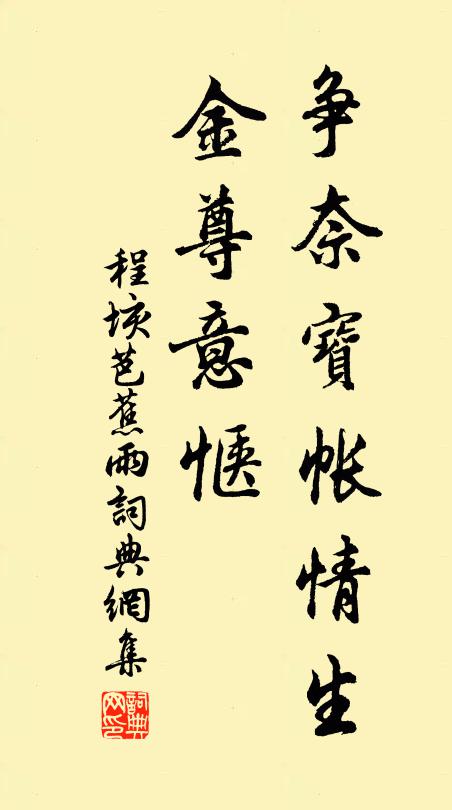 争奈寶帐情生
金尊意惬
程垓芭蕉雨詞典網集
詞典网印